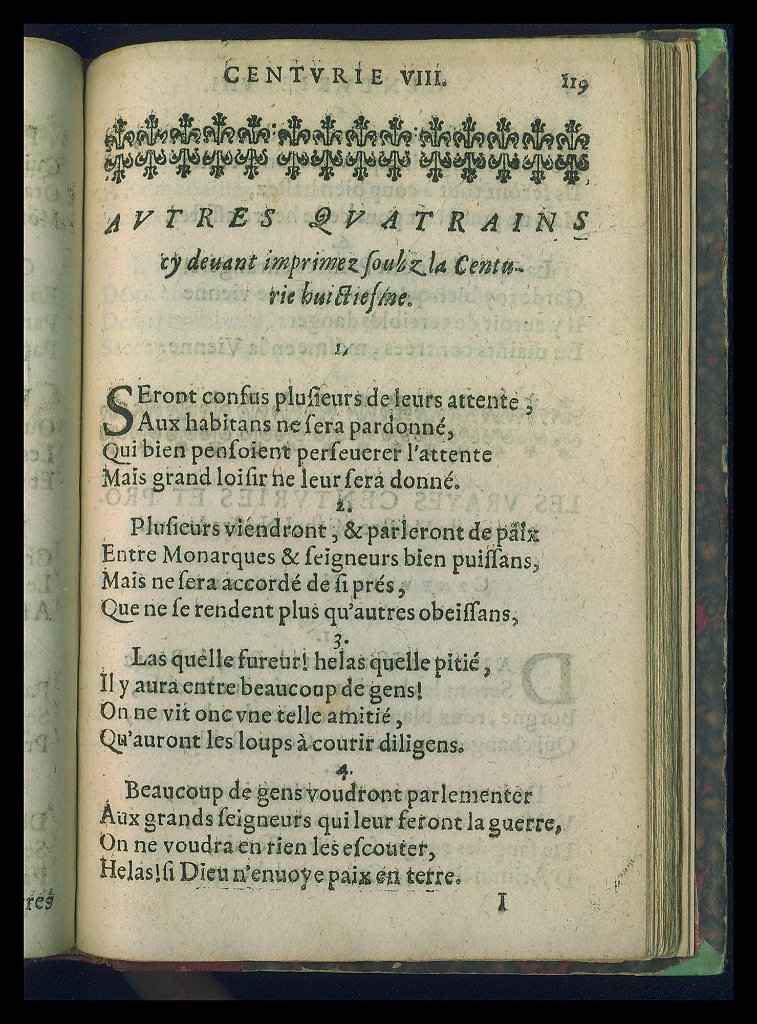 CENTVRIE VIII. 119
AVTRES QVATRAINS
cy deuant imprimez ſoubz la Centu-
rie huictieſme.
1.
SEront confus pluſieurs de leurs attente ;
Aux habitans ne ſera pardonné,
Qui bien penſoient perſeuerer l'attente
Mais grand loiſir ne leur ſera donné.
2.
Pluſieurs viendront, & parleront de paix
Entre Monarques & ſeigneurs bien puiſſans,
Mais ne ſera accordé de ſi prés,
Que ne ſe rendent plus qu'autres obeiſſans,
3.
Las quelle fureur! helas quelle pitié,
Il y aura entre beaucoup de gens!
On ne vit onc vne telle amitié,
Qu'auront les loups à courir diligens.
4.
Beaucoup de gens voudront parlementer
Aux grands ſeigneurs qui leur feront la guerre,
On ne voudra en rien les eſcouter,
Helas! ſi Dieu n'enuoye paix en terre.
I